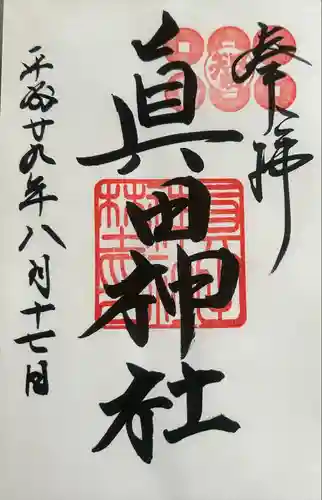 奉拝
真田神社
平成廿九年八月十七日